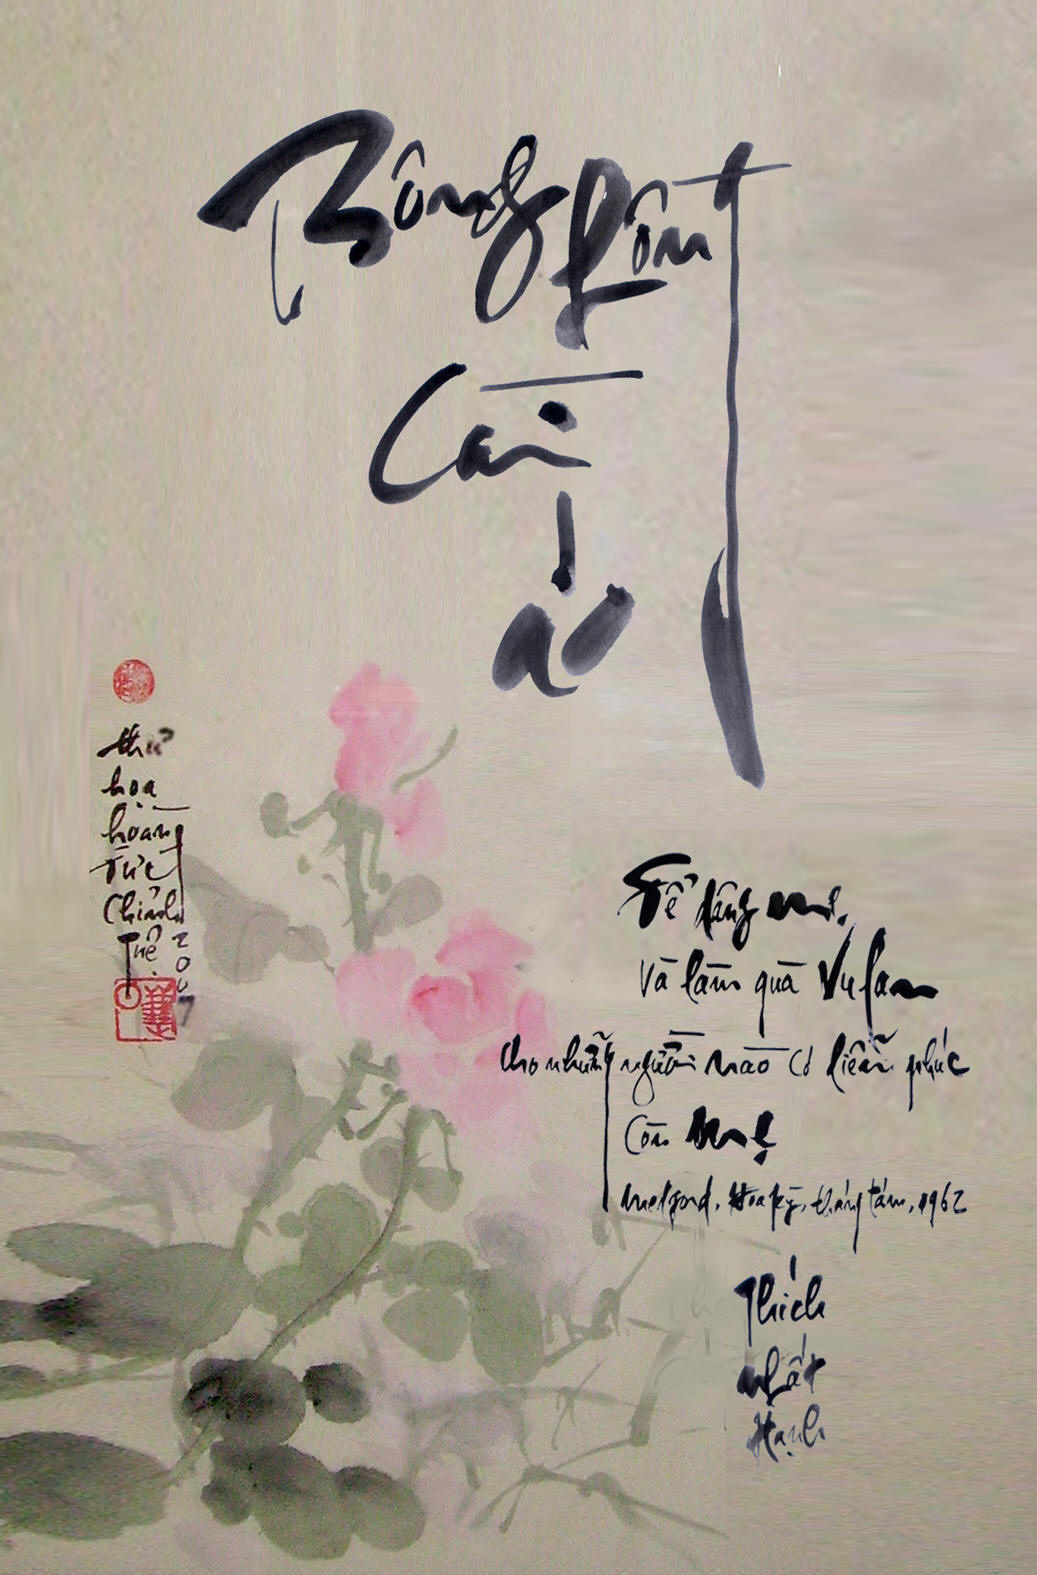 Bông hồng
Cài
áo
thư
họa
hoàng
Đức
Chính
Tuệ
2007
Để dâng mẹ,
Và làm quà Vu lan
cho những người nào có diễm phúc
Còn Mẹ
Medford, Hoa kỳ, tháng tám, 1962
Thích
nhất
Hạnh